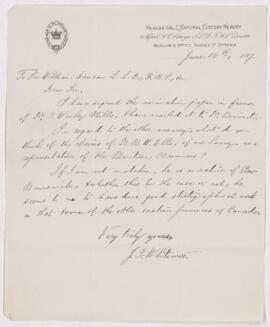 GEOLOGICAL & NATURAL HISTORY SURVEY
Alfred R. C. Selwyn L.L.D. F.R.S. Director
MUSEUM & OFFICE, SUSSEX ST. OTTAWA
June 16th, 1887.
To Sir William Dawson L.L.D., F.R.S.,
Dear Sir,
I have signed the nomination paper in favor
of Dr. T. Wesley Mills & have mailed it to
In regard to the other vacancy, what do you
think of the claims of R. W. Ells, of our Survey, as a
representative of the Maritime Provinces?
If I am not mistaken, he is a native of New
Brunswick. Whether this be the case or not, he
seems to me to have done good stratigraphical work
in that & some of the other eastern provinces of Canada.
Very truly yours,
J. F. Whiteaves.